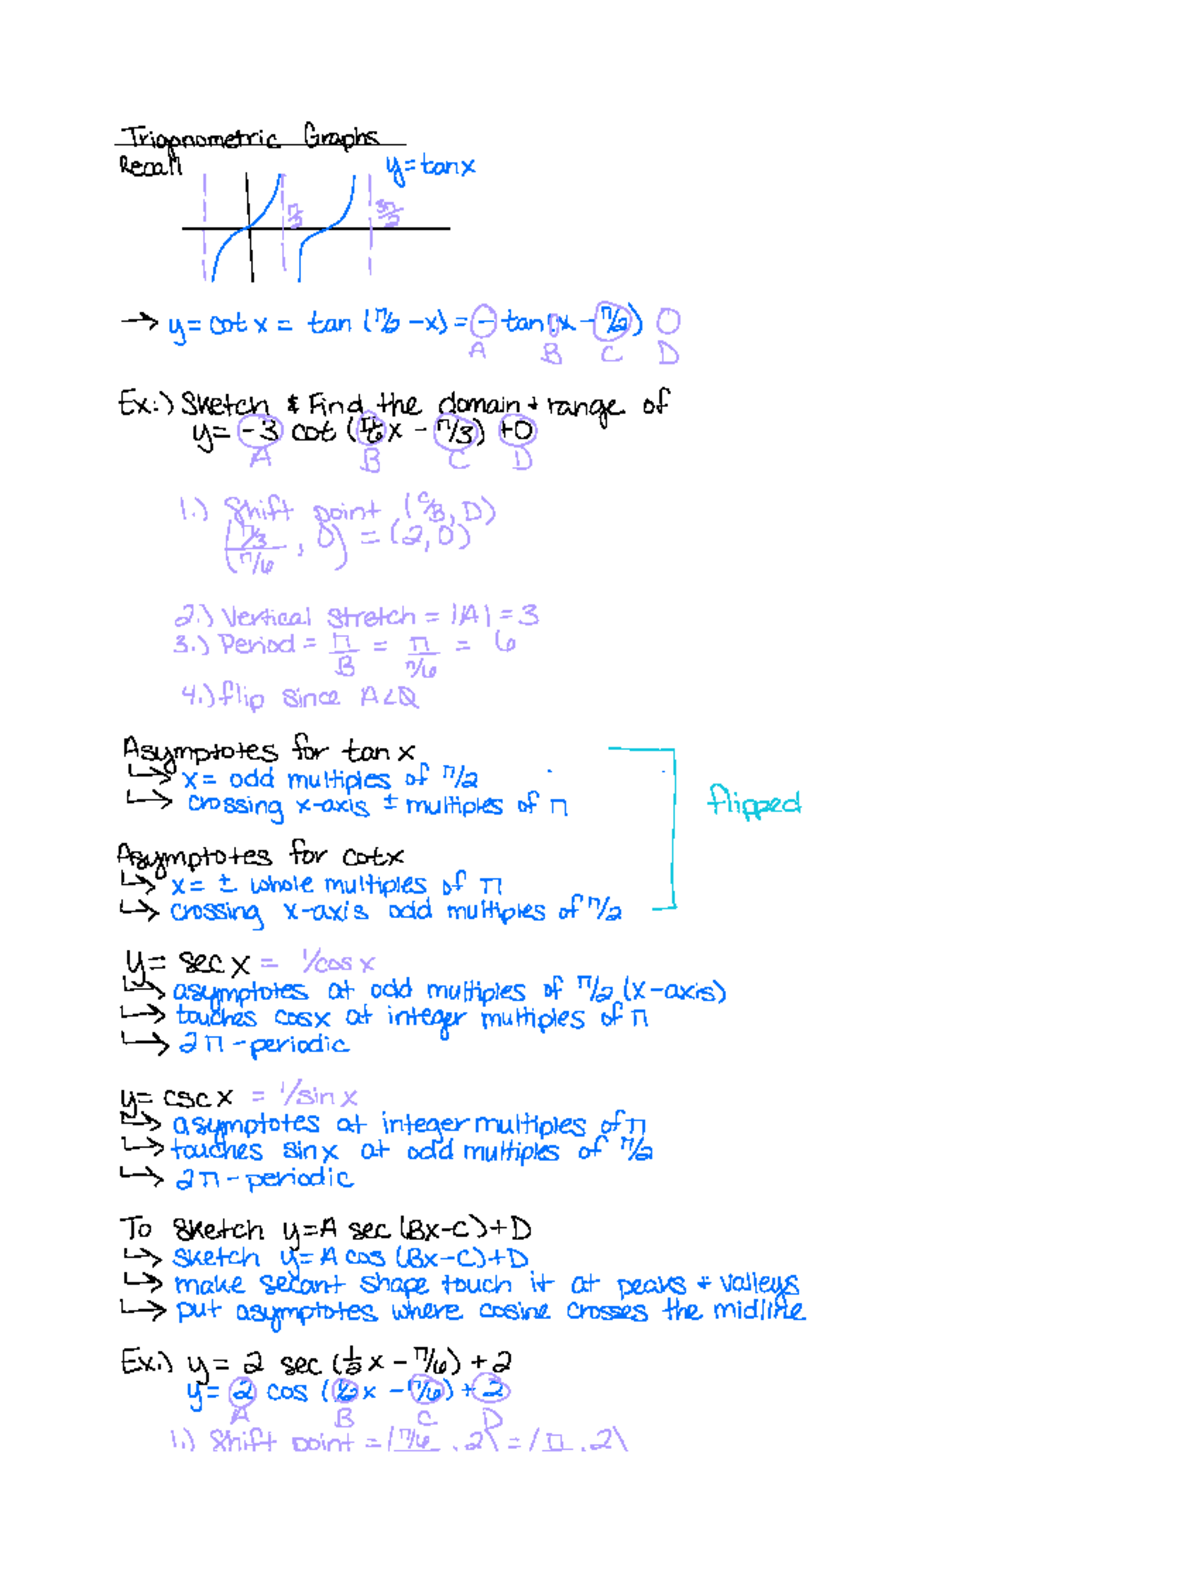 Trigonometric Graphs
Recall
y = tan x
π/2
3π/2
→ y = cot x = tan (π/2 - x) = - tan (x - π/2)
A B C D
Ex:) Sketch & Find the domain + range of
y = -3 cot (π/6 x - π/3) +0
A B C D
1.) Shift point (C/B, D)
(π/3 / π/6, 0) = (2,0)
2.) Vertical Stretch = |A| = 3
3.) Period = π/B = π/π/6 = 6
4.) flip since A<0
Asymptotes for tan x
↳ x = odd multiples of π/2
↳ crossing x-axis ± multiples of π
flipped
Asymptotes for cot x
↳ x = ± whole multiples of π
↳ crossing x-axis odd multiples of π/2
y = sec x = 1/cos x
↳ asymptotes at odd multiples of π/2 (x-axis)
↳ touches cosx at integer multiples of π
↳ 2π-periodic
y = csc x = 1/sin x
↳ asymptotes at integer multiples of π
↳ touches sin x at odd multiples of π/2
↳ 2π-periodic
To Sketch y=A sec (Bx-C)+D
↳ sketch y=A cos (Bx-C)+D
↳ make secant shape touch it at peaks + valleys
↳ put asymptotes where cosine crosses the midline
Ex:) y = 2 sec (1/2 x - π/6) + 2
y = 2 cos (1/2 x - π/6) + 2
A B C D
1.) Shift point = (π/6 , 2) = (π , 2)